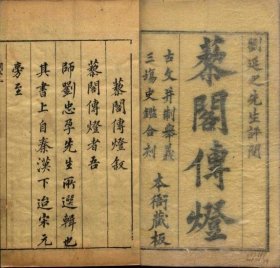 劉延之先生評閱
藜閣傳燈
古文幷制舉義
三塲史鑑合刻
本衙藏板
藜閣傳燈叙
藜閣傳燈者吾
師劉忠孚先生所選輯也
其書上自秦漢下迨宋元
旁至